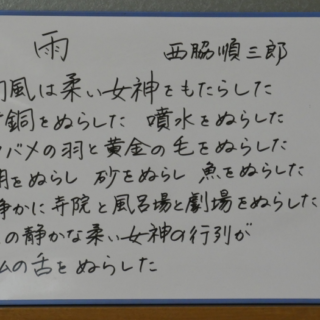 雨 西脇順三郎
風は柔い女神をもたらした
銅をぬらした 噴水をぬらした
バメの羽と黄金の毛をぬらした
をぬらし 砂をぬらし 魚をぬらした
かに寺院と風呂場と劇場をぬらした
の静かな柔い女神の行列が
の舌をぬらした